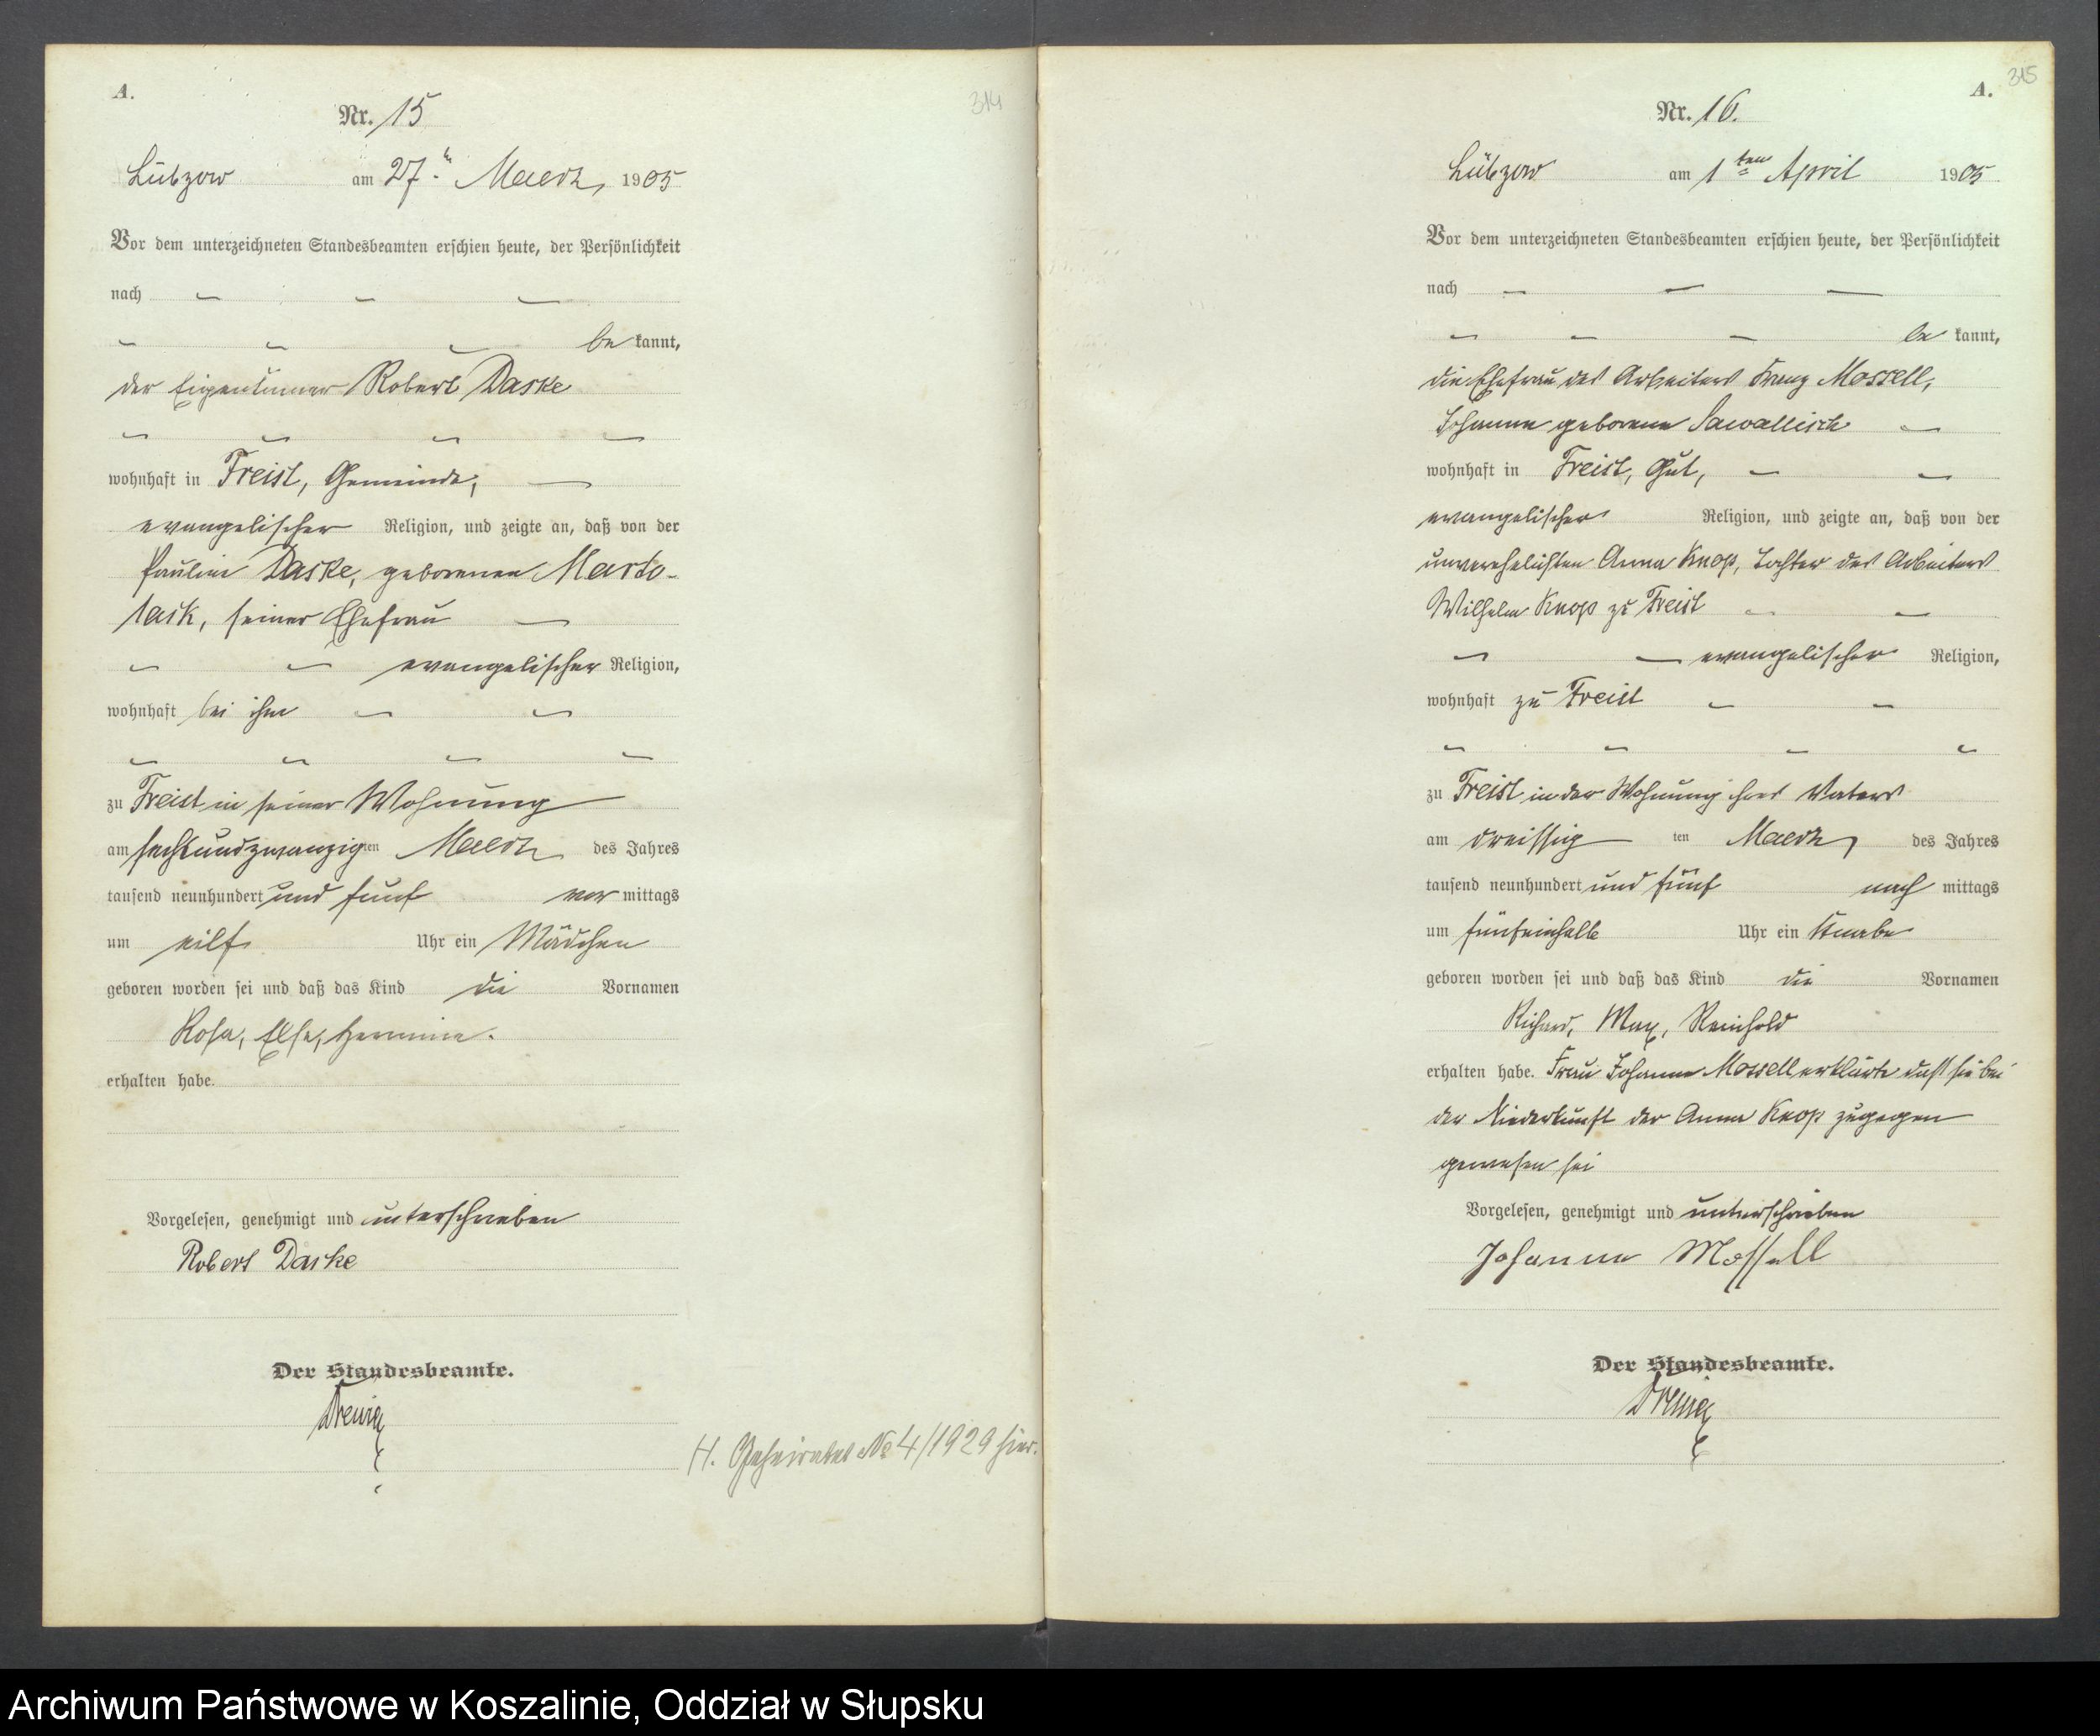 A.
314
Nr. 15
Lübzow am 27ten Maerz 1905
Vor dem unterzeichneten Standesbeamten erschien heute, der Persönlichkeit
nach
be kannt,
der Eigentümer Robert Daske
wohnhaft in Freist, Gemeinde,
evangelischer Religion, und zeigte an, daß von der
Pauline Daske, geborenen
seiner Ehefrau
evangelischer Religion,
wohnhaft bei ihm
zu Freist in seiner Wohnung
am sechsundzwanzigten Maerz des Jahres
tausend neunhundert und fünf vor mittags
um eilf Uhr ein Mädchen
geboren worden sei und daß das Kind die Vornamen
Rosa, Elsa, Hermine.
erhalten habe.
Vorgelesen, genehmigt und unterschrieben
Robert Daske
Der Standesbeamte.
H. Geheiratet No 4/1929 hier.
315
A.
Nr. 16.
Lübzow am 1ten April 1905
Vor dem unterzeichneten Standesbeamten erschien heute, der Persönlichkeit
nach
be kannt,
die Ehefrau des Arbeiters Franz Mossell,
Johanne geborene Sawallisch
wohnhaft in Freist, Gut,
evangelischer Religion, und zeigte an, daß von der
unverehelichten Anna Knop, Tochter des Arbeiters
Wilhelm Knop zu Freist
evangelischer Religion,
wohnhaft zu Freist
zu Freist in der Wohnung ihres Vaters
am dreissig ten Maerz des Jahres
tausend neunhundert und fünf nach mittags
um fünfeinhalb Uhr ein Knabe
geboren worden sei und daß das Kind die Vornamen
Richard, Max, Reinhold
erhalten habe. Frau Johanne Mossell erklärte daß sie bei
der Niederkunft der Anna Knop zugegen
gewesen sei
Vorgelesen, genehmigt und unterschrieben
Johanne Mossell
Der Standesbeamte.
Archiwum Państwowe w Koszalinie, Oddział w Słupsku